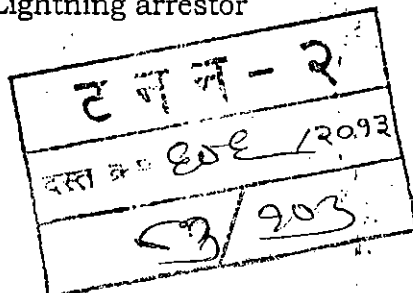 Lightning arrestor
ट न न - २
दस्त क्र. ६०६ /२०१३
८३/१०३